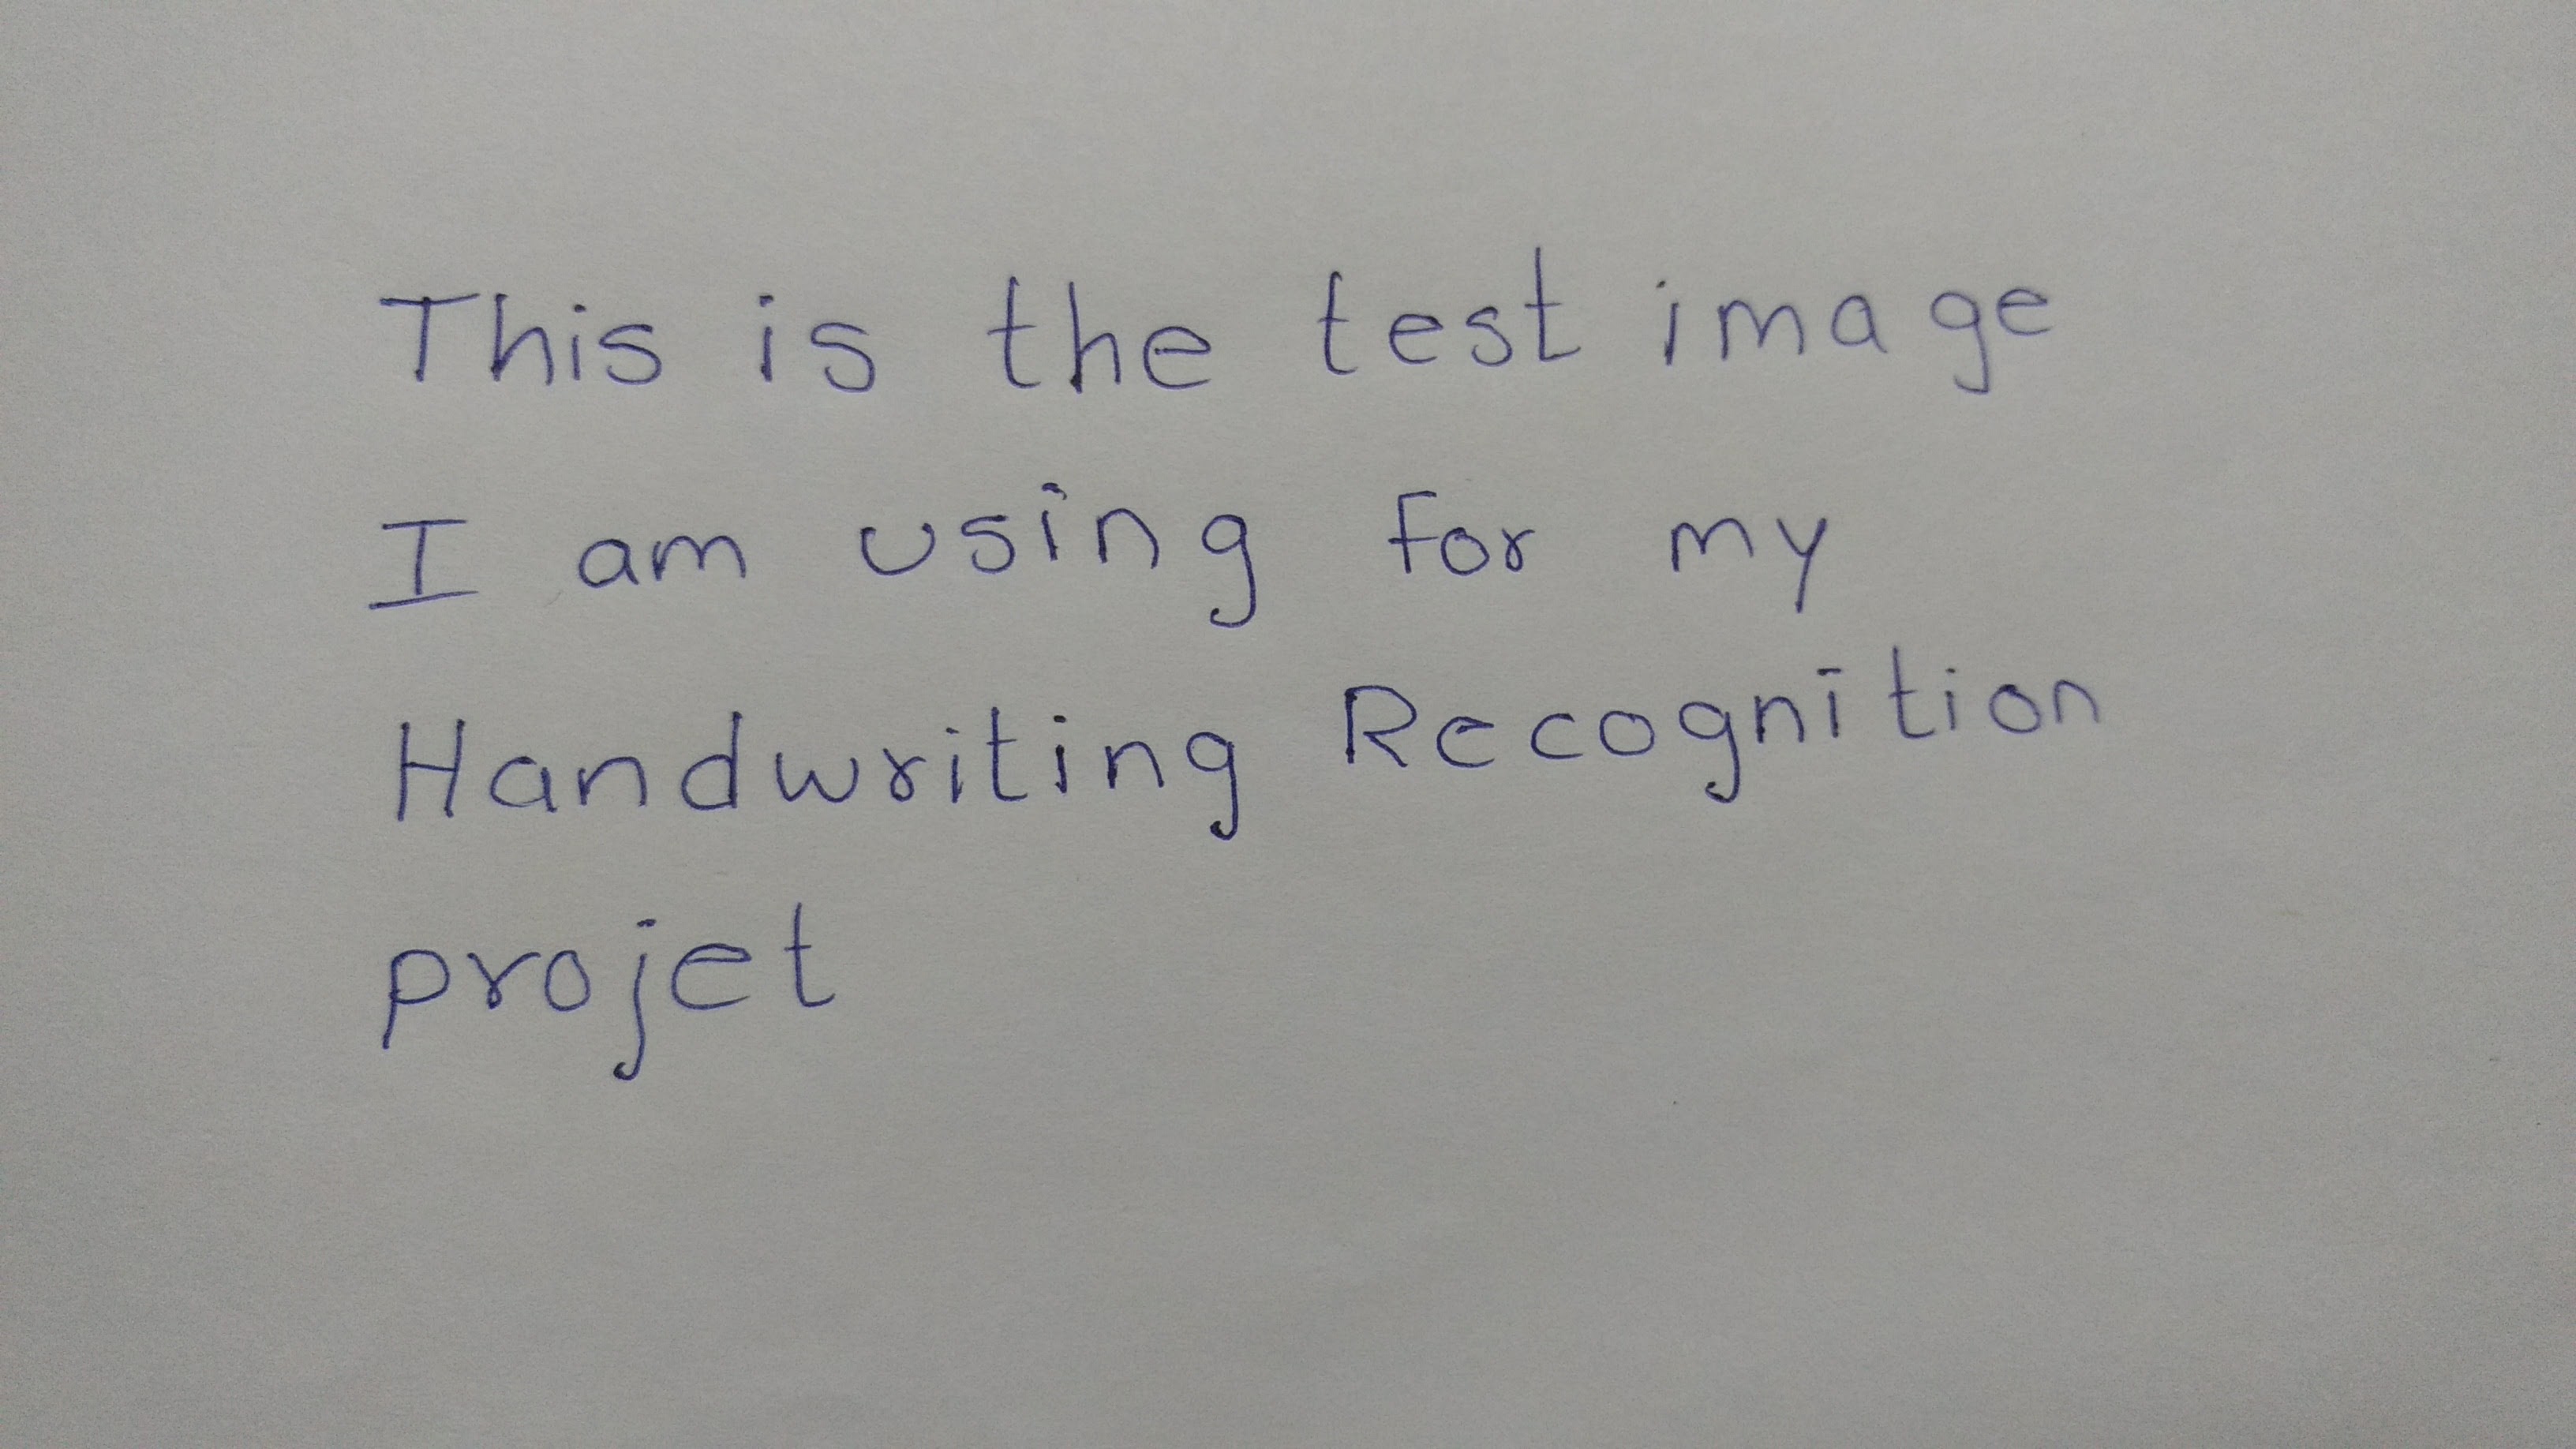 This is the test image
I am using for my
Handwriting Recognition
projet